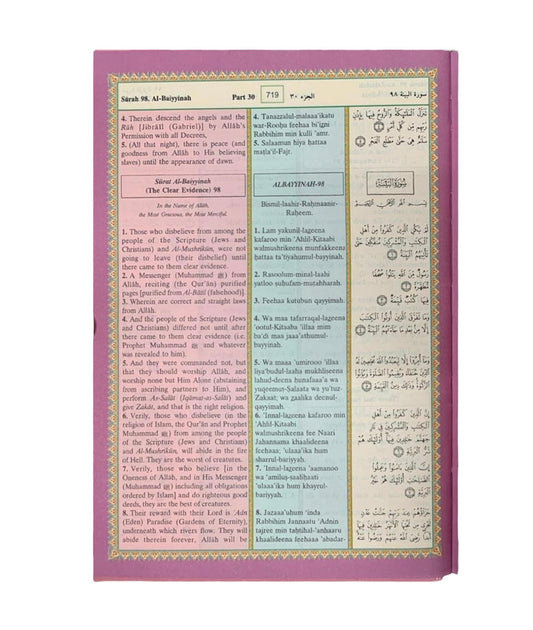 Sûrah 98. Al-Baiyyinah
Part 30
719
الجزء ٣٠
سورة البينة ٩٨
4. Therein descend the angels and the
Rûh [Jibrâîl (Gabriel)] by Allâh's
Permission with all Decrees,
5. (All that night), there is peace (and
goodness from Allâh to His believing
slaves) until the appearance of dawn.
Sûrat Al-Baiyyinah
(The Clear Evidence) 98
In the Name of Allâh,
the Most Gracious, the Most Merciful.
1. Those who disbelieve from among the
people of the Scripture (Jews and
Christians) and Al-Mushrikûn, were not
going to leave (their disbelief) until
there came to them clear evidence.
2. A Messenger (Muhammad ﷺ) from
Allâh, reciting (the Qur'ân) purified
pages [purified from Al-Bâtil (falsehood)].
3. Wherein are correct and straight laws
from Allâh.
4. And the people of the Scripture (Jews
and Christians) differed not until after
there came to them clear evidence (i.e.
Prophet Muhammad ﷺ and whatever
was revealed to him).
5. And they were commanded not, but
that they should worship Allâh, and
worship none but Him Alone (abstaining
from ascribing partners to Him), and
perform As-Salât (Iqâmat-as-Salât) and
give Zakât, and that is the right religion.
6. Verily, those who disbelieve (in the
religion of Islam, the Qur'ân and Prophet
Muhammad ﷺ) from among the people
of the Scripture (Jews and Christians)
and Al-Mushrikûn, will abide in the fire
of Hell. They are the worst of creatures.
7. Verily, those who believe [in the
Oneness of Allâh, and in His Messenger
(Muhammad ﷺ) including all obligations
ordered by Islam] and do righteous good
deeds, they are the best of creatures.
8. Their reward with their Lord is 'Adn
(Eden) Paradise (Gardens of Eternity),
underneath which rivers flow. They will
abide therein forever, Allâh will be
4. Tanazzalul-malaaa'ikatu
war-Roohu feehaa bi'igni
Rabbihim min kulli 'amr.
5. Salaamun hiya hattaa
matla'il-Fajr.
ALBAYYINAH-98
Bismil-laahir-Rahmaanir-
Raheem.
1. Lam yakunil-lageena
kafaroo min 'Ahlil-Kitaabi
walmushrikeena munfakkeena
hattaa ta'tiyahumul-bayyinah.
2. Rasoolum-minal-laahi
yatloo suhufam-mutahharah.
3. Feehaa kutubun qayyimah.
4. Wa maa tafarraqal-lageena
'ootul-Kitaaba 'illaa mim
ba'di maa jaaa'athumul-
bayyinah.
5. Wa maaa 'umirooo 'illaa
liya'budul-laaha mukhliseena
lahud-deena hunafaaa'a wa
yuqeemus-Salaata wa yu'tuz-
Zakaat; wa zaalika deenul-
qayyimah.
6. 'Innal-lageena kafaroo min
'Ahlil-Kitaabi
walmushrikeena fee Naari
Jahannama khaalideena
feehaa; 'ulaaa'ika hum
sharrul-bariyyah.
7. 'Innal-lageena 'aamanoo
wa 'amilus-saalihaati
'ulaaa'ika hum khayrul-
bariyyah.
8. Jazaaa'uhum 'inda
Rabbihim Jannaatu 'Adnin
tajree min tahtihal-'anhaaru
khaalideena feehaaa 'abadar-
تَنَزَّلُ الْمَلَائِكَةُ وَالرُّوحُ فِيهَا بِإِذْنِ
رَبِّهِم مِّن كُلِّ أَمْرٍ ۝٤
سَلَامٌ هِيَ حَتَّىٰ مَطْلَعِ الْفَجْرِ ۝٥
سُورَةُ الْبَيِّنَةِ
بِسْمِ اللَّهِ الرَّحْمَٰنِ الرَّحِيمِ
لَمْ يَكُنِ الَّذِينَ كَفَرُوا مِنْ أَهْلِ
الْكِتَابِ وَالْمُشْرِكِينَ مُنفَكِّينَ حَتَّىٰ
تَأْتِيَهُمُ الْبَيِّنَةُ ۝١
رَسُولٌ مِّنَ اللَّهِ يَتْلُو صُحُفًا
مُّطَهَّرَةً ۝٢
فِيهَا كُتُبٌ قَيِّمَةٌ ۝٣
وَمَا تَفَرَّقَ الَّذِينَ أُوتُوا الْكِتَابَ
إِلَّا مِن بَعْدِ مَا جَاءَتْهُمُ الْبَيِّنَةُ ۝٤
وَمَا أُمِرُوا إِلَّا لِيَعْبُدُوا اللَّهَ مُخْلِصِينَ لَهُ
الدِّينَ حُنَفَاءَ وَيُقِيمُوا الصَّلَاةَ وَيُؤْتُوا
الزَّكَاةَ وَذَٰلِكَ دِينُ الْقَيِّمَةِ ۝٥
إِنَّ الَّذِينَ كَفَرُوا مِنْ أَهْلِ
الْكِتَابِ وَالْمُشْرِكِينَ فِي نَارِ
جَهَنَّمَ خَالِدِينَ فِيهَا أُولَٰئِكَ هُمْ
شَرُّ الْبَرِيَّةِ ۝٦
إِنَّ الَّذِينَ آمَنُوا وَعَمِلُوا
الصَّالِحَاتِ أُولَٰئِكَ هُمْ خَيْرُ
الْبَرِيَّةِ ۝٧
جَزَاؤُهُمْ عِندَ رَبِّهِمْ جَنَّاتُ عَدْنٍ
تَجْرِي مِن تَحْتِهَا الْأَنْهَارُ خَالِدِينَ
فِيهَا أَبَدًا رَّضِيَ اللَّهُ عَنْهُمْ وَرَضُوا